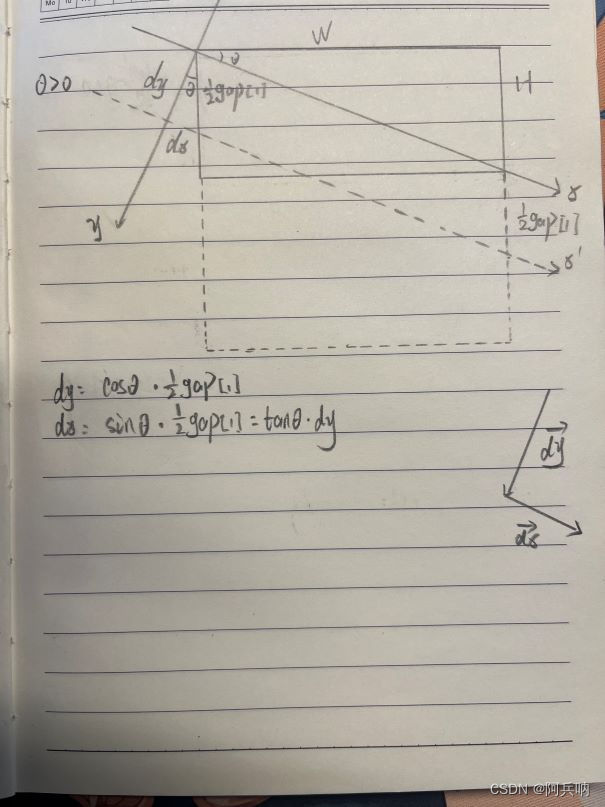 Mo Tu
W
θ
θ>0
dy
θ
½gap[1]
H
dx
x
y
½gap[1]
x'
dy = cosθ · ½gap[1]
dx = sinθ · ½gap[1] = tanθ · dy
dy
dx
CSDN @阿兵呐